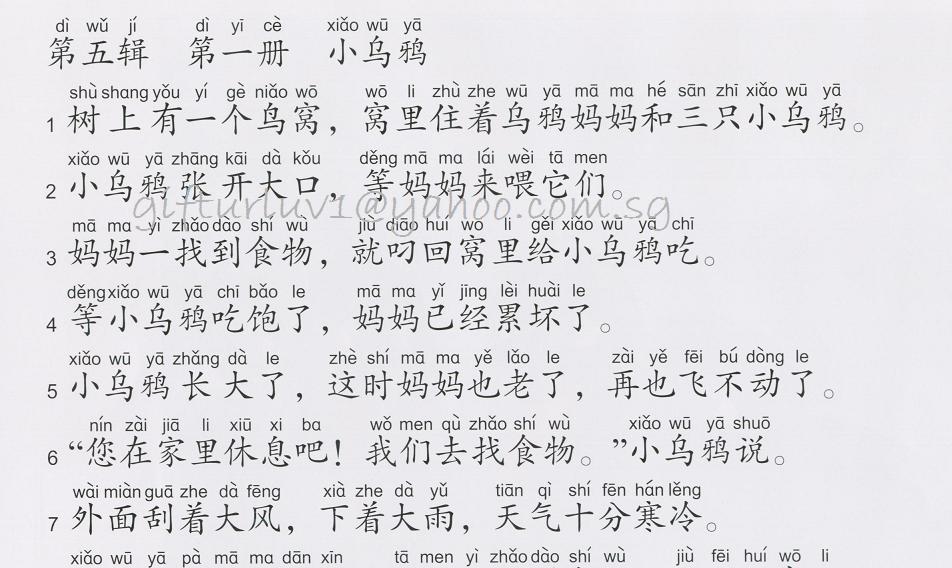 dì wǔ jí dì yī cè xiǎo wū yā
第五辑 第一册 小乌鸦
shù shang yǒu yí gè niǎo wō wō li zhù zhe wū yā mā ma hé sān zhī xiǎo wū yā
1 树上有一个鸟窝，窝里住着乌鸦妈妈和三只小乌鸦。
xiǎo wū yā zhāng kāi dà kǒu děng mā ma lái wèi tā men
2 小乌鸦张开大口，等妈妈来喂它们。
gifturluv1@yahoo.com.sg
mā ma yì zhǎo dào shí wù jiù diāo huí wo li gěi xiǎo wū yā chī
3 妈妈一找到食物，就叼回窝里给小乌鸦吃。
děng xiǎo wū yā chī bǎo le mā ma yǐ jīng lèi huài le
4 等小乌鸦吃饱了，妈妈已经累坏了。
xiǎo wū yā zhǎng dà le zhè shí mā ma yě lǎo le zài yě fēi bú dòng le
5 小乌鸦长大了，这时妈妈也老了，再也飞不动了。
nín zài jiā li xiū xi ba wǒ men qù zhǎo shí wù xiǎo wū yā shuō
6 “您在家里休息吧！我们去找食物。”小乌鸦说。
wài miàn guā zhe dà fēng xià zhe dà yǔ tiān qì shí fēn hán lěng
7 外面刮着大风，下着大雨，天气十分寒冷。
xiǎo wū yā pà mā ma dān xīn tā men yì zhǎo dào shí wù jiù fēi huí wō li